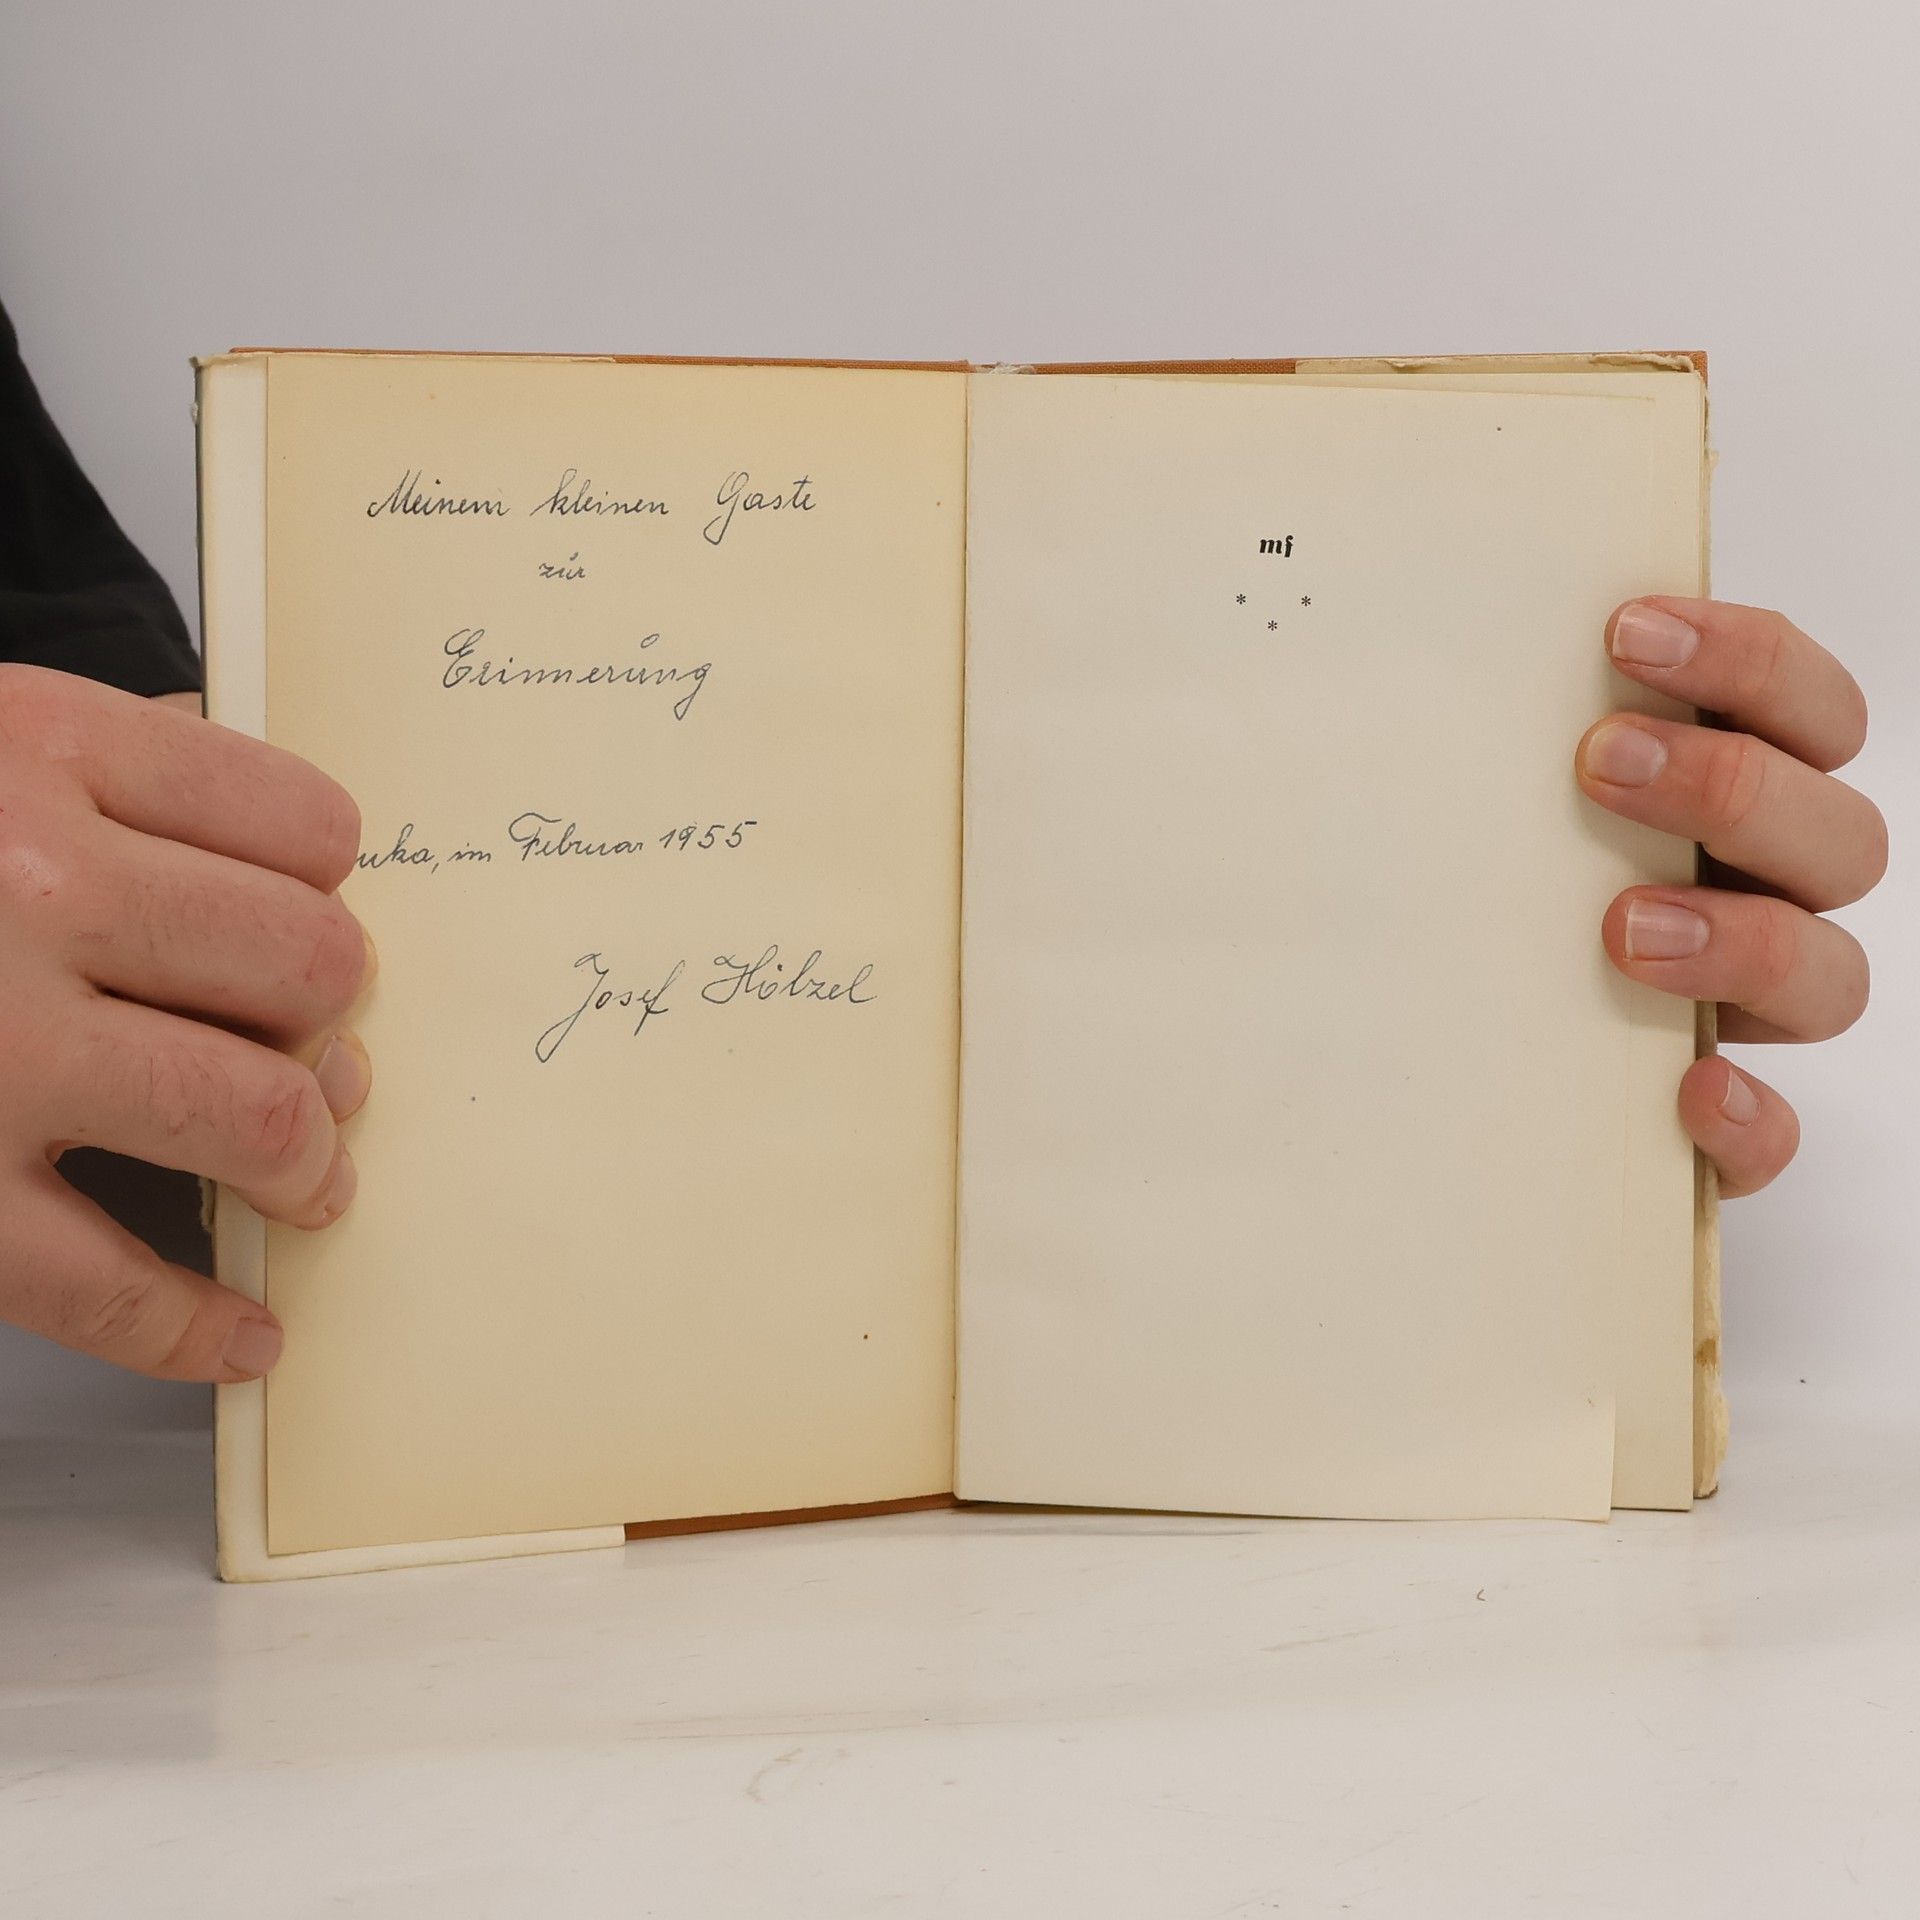 Meinem kleinen Gaste
zur
Erinnerung
im Februar 1955
Josef Hölzel
mf
* *
*